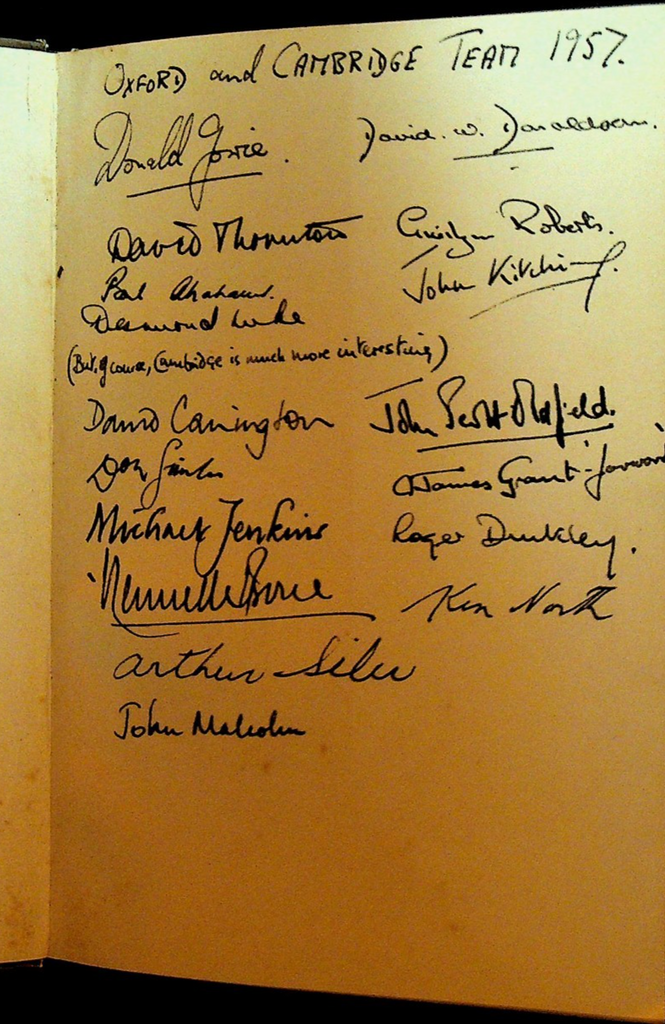 OXFORD and CAMBRIDGE TEAM 1957.
Donald Gowie. David. W. Donaldson.
David Thornton Gwilym Roberts.
Paul John Kitching.
Desmond Luke
(But, of course, Cambridge is much more interesting)
David Carrington John Scott Oldfield.
Don James Grant-
Michael Jenkins Roger Dunkley.
Ken North
Arthur Siler
John Malcolm